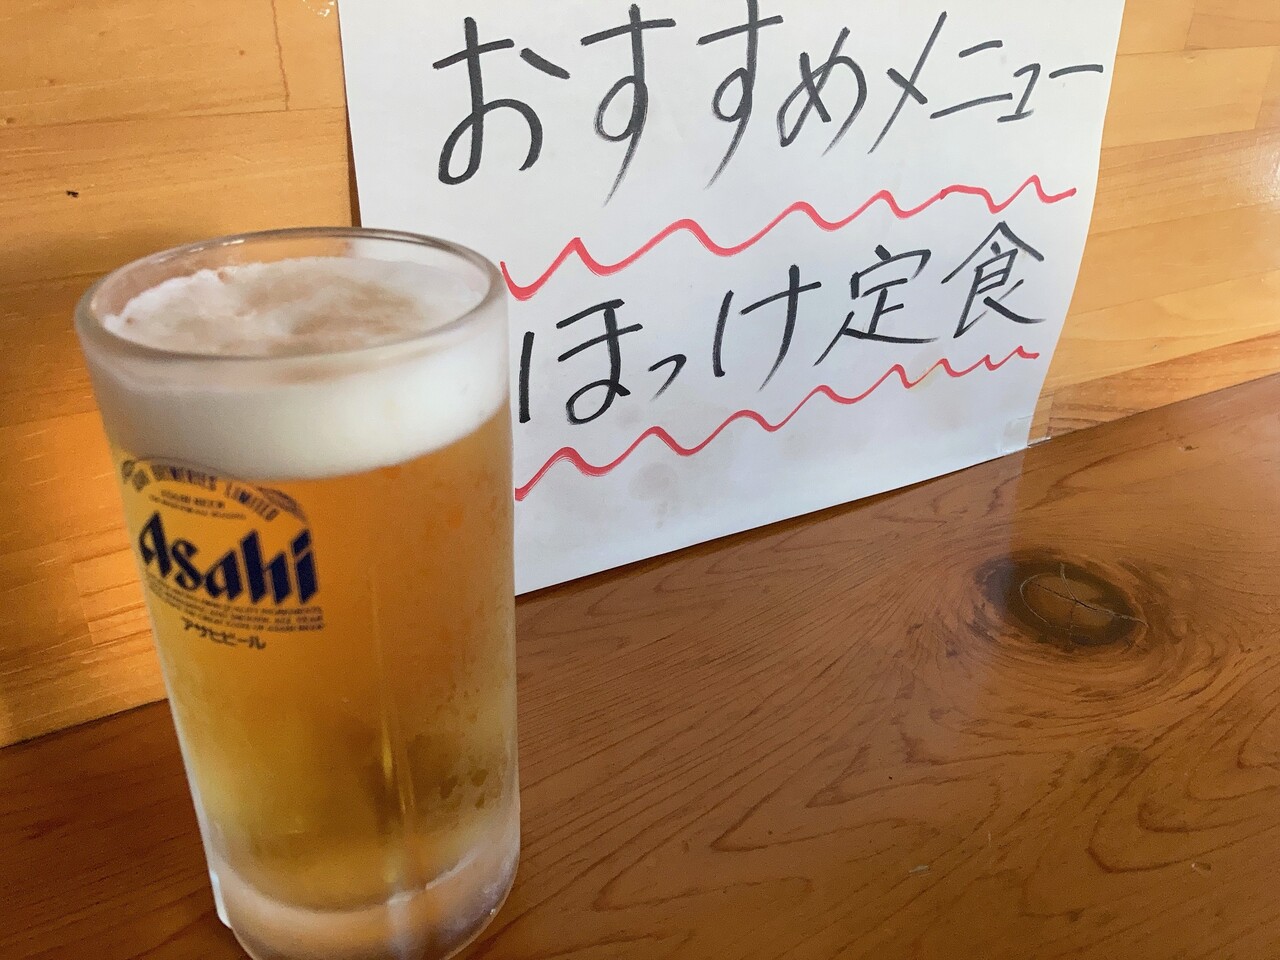 おすすめメニュー
ほっけ定食
BREWERIES LIMITED
ASAHI BEER
Asahi
アサヒビール